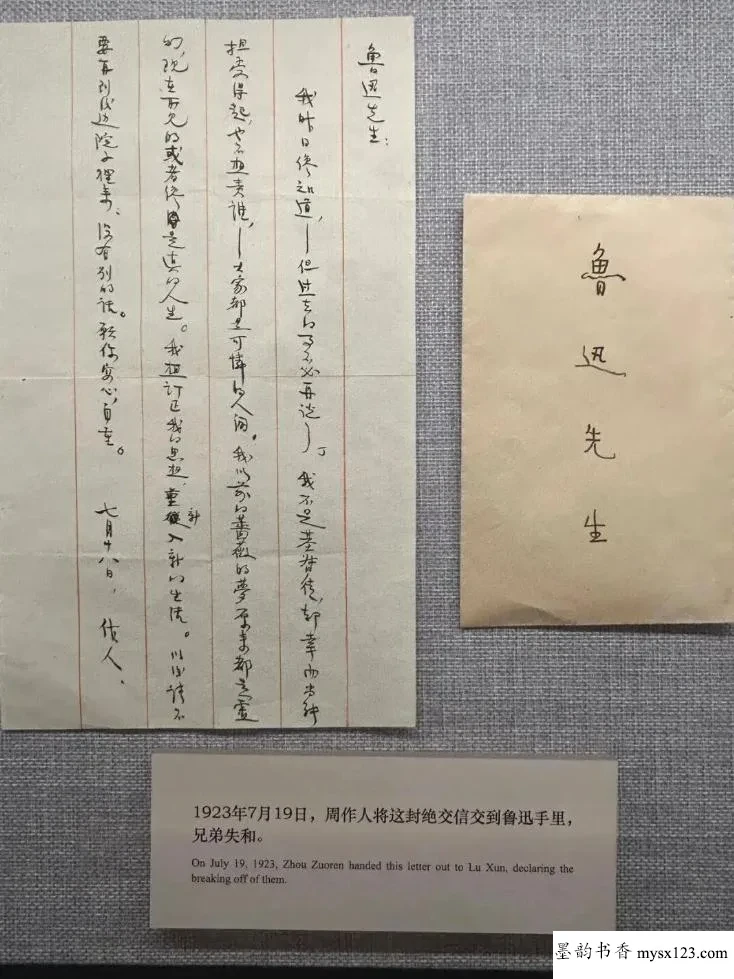 鲁迅先生：
我昨日才知道，—但过去的事不必再说了。我不是基督徒，却幸而尚能
担受得起，也不想责谁，—大家都是可怜的人间。我以前的蔷薇的夢原来都是虚
幻，现在所见的或者才是真的人生。我想订正我的思想，重新入新的生活。以后请不
要再到后边院子裡来，没有别的话。愿你安心，自重。
七月十八日，作人。
魯迅先生
1923年7月19日，周作人将这封绝交信交到鲁迅手里，
兄弟失和。
On July 19, 1923, Zhou Zuoren handed this letter out to Lu Xun, declaring the
breaking off of them.
墨韵书香 mysx123.com